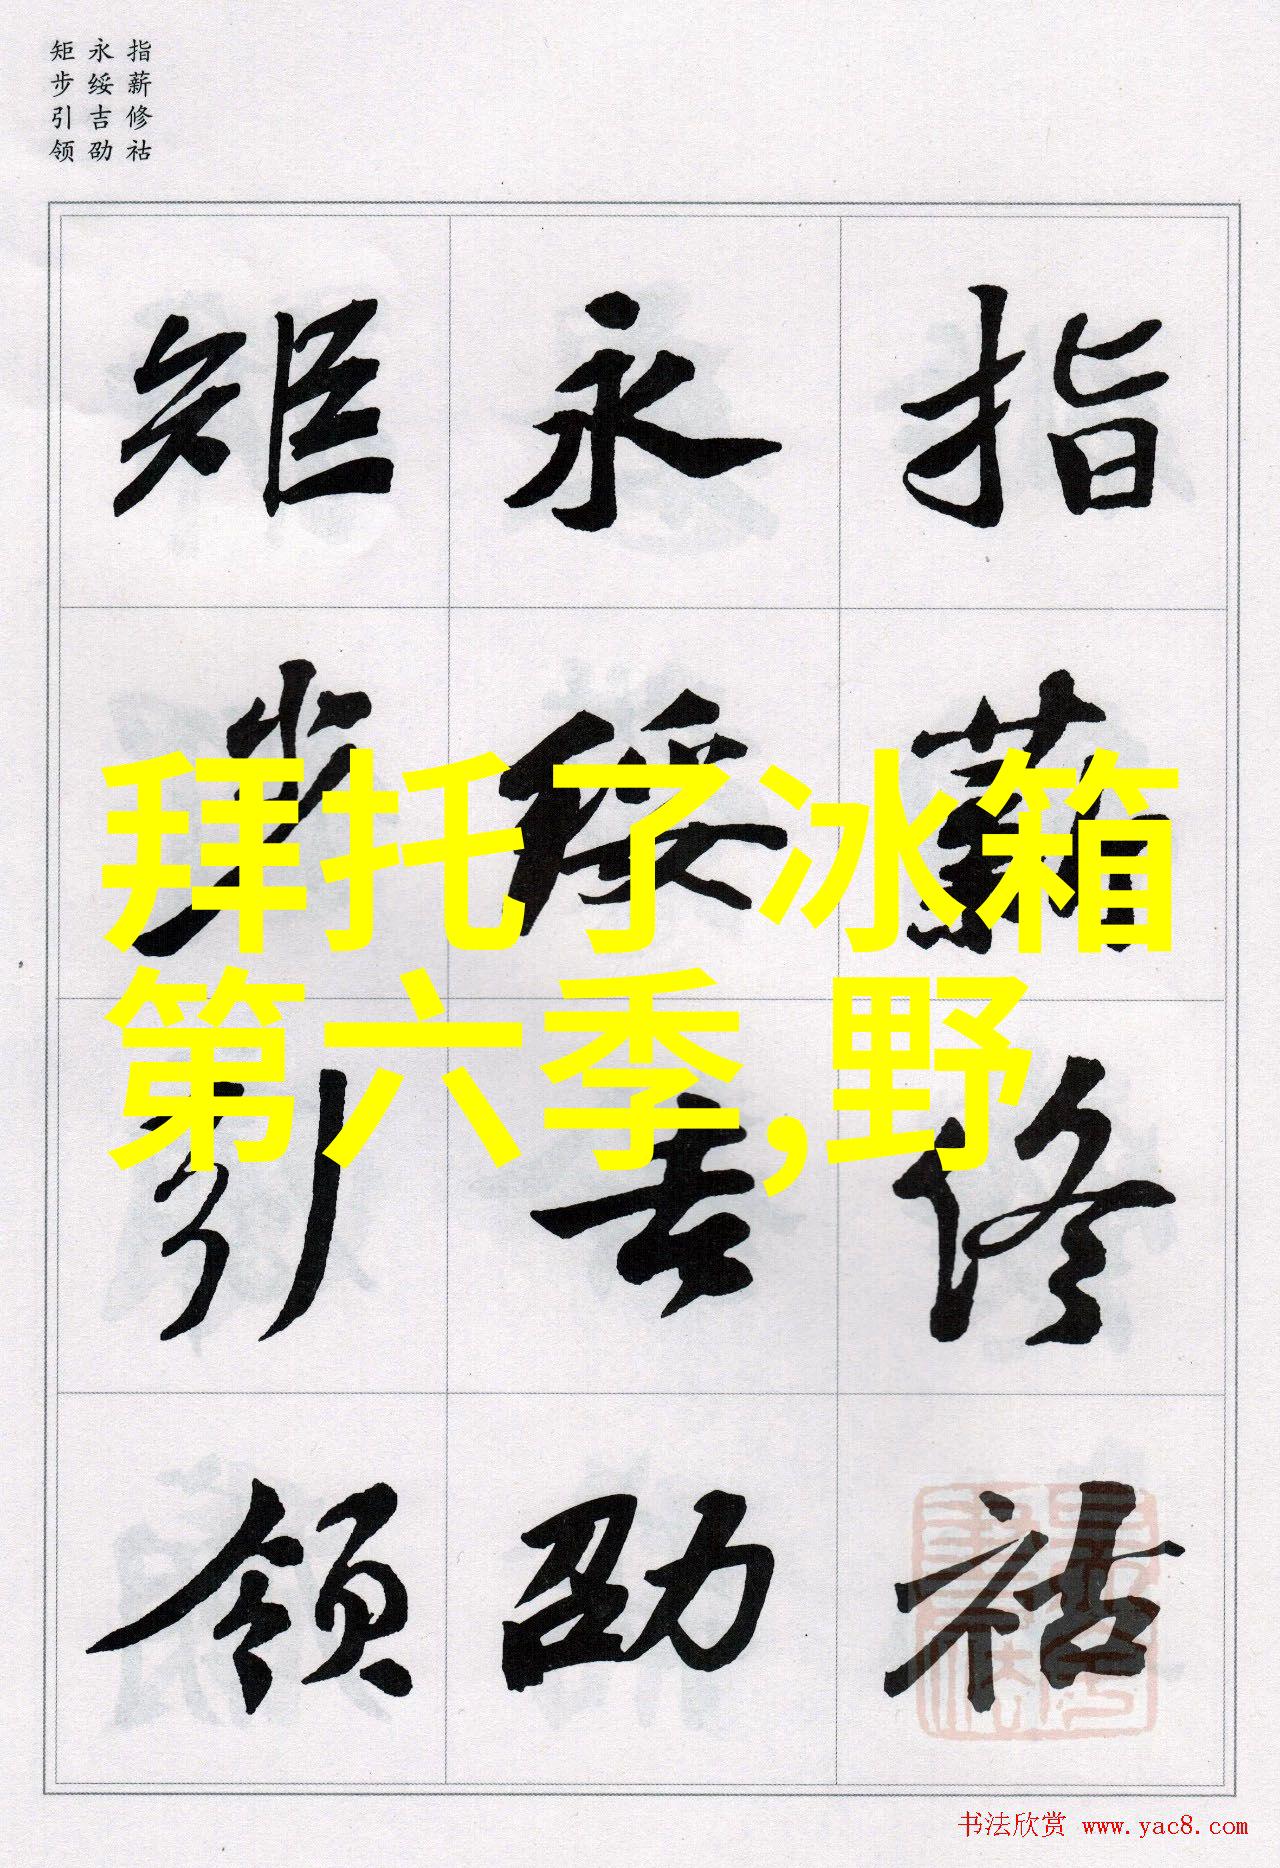 指薪修祜
永绥吉劭
矩步引领
指薪修祜
永绥吉劭
矩步引领
拜托了冰箱
第六季,野
书法欣赏 www.yac8.com